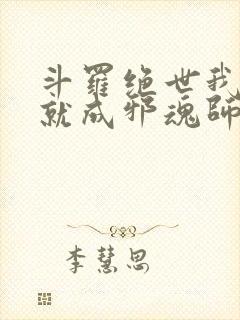 斗羅绝世我
就成邪魂師
李慧思